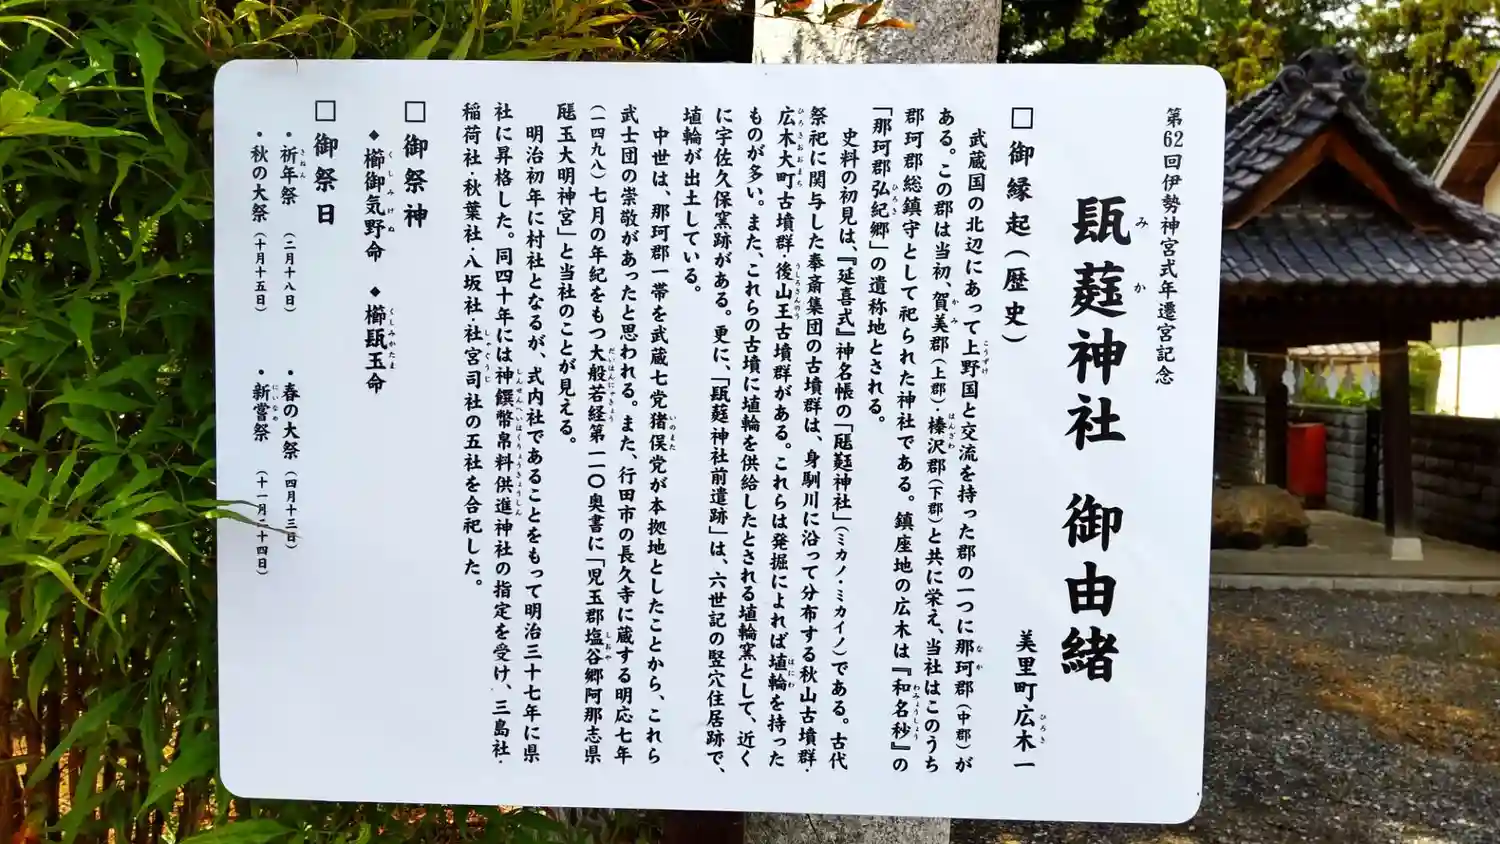 第62回伊勢神宮式年遷宮記念
甕㽵神社 御由緒
美里町広木一
□御縁起（歴史）
武蔵国の北辺にあって上野国と交流を持った郡の一つに那珂郡（中郡）が
ある。この郡は当初、賀美郡（上郡）・榛沢郡（下郡）と共に栄え、当社はこのうち
郡珂郡総鎮守として祀られた神社である。鎮座地の広木は『和名抄』の
「那珂郡弘紀郷」の遺称地とされる。
史料の初見は、『延喜式』神名帳の「㼭㽵神社」（ミカノ・ミカイノ）である。古代
祭祀に関与した奉斎集団の古墳群は、身馴川に沿って分布する秋山古墳群・
広木大町古墳群・後山王古墳群がある。これらは発掘によれば埴輪を持った
ものが多い。また、これらの古墳に埴輪を供給したとされる埴輪窯として、近く
に宇佐久保窯跡がある。更に、「甕㽵神社前遺跡」は、六世記の竪穴住居跡で、
埴輪が出土している。
中世は、那珂郡一帯を武蔵七党猪俣党が本拠地としたことから、これら
武士団の崇敬があったと思われる。また、行田市の長久寺に蔵する明応七年
（一四九八）七月の年紀をもつ大般若経第一一〇奥書に「児玉郡塩谷郷阿那志県
㼭玉大明神宮」と当社のことが見える。
明治初年に村社となるが、式内社であることをもって明治三十七年に県
社に昇格した。同四十年には神饌幣帛料供進神社の指定を受け、三島社・
稲荷社・秋葉社・八坂社・社宮司社の五社を合祀した。
□御祭神
◆櫛御気野命 ◆櫛甕玉命
□御祭日
・祈年祭（二月十八日） ・春の大祭（四月十三日）
・秋の大祭（十月十五日） ・新嘗祭（十一月二十四日）